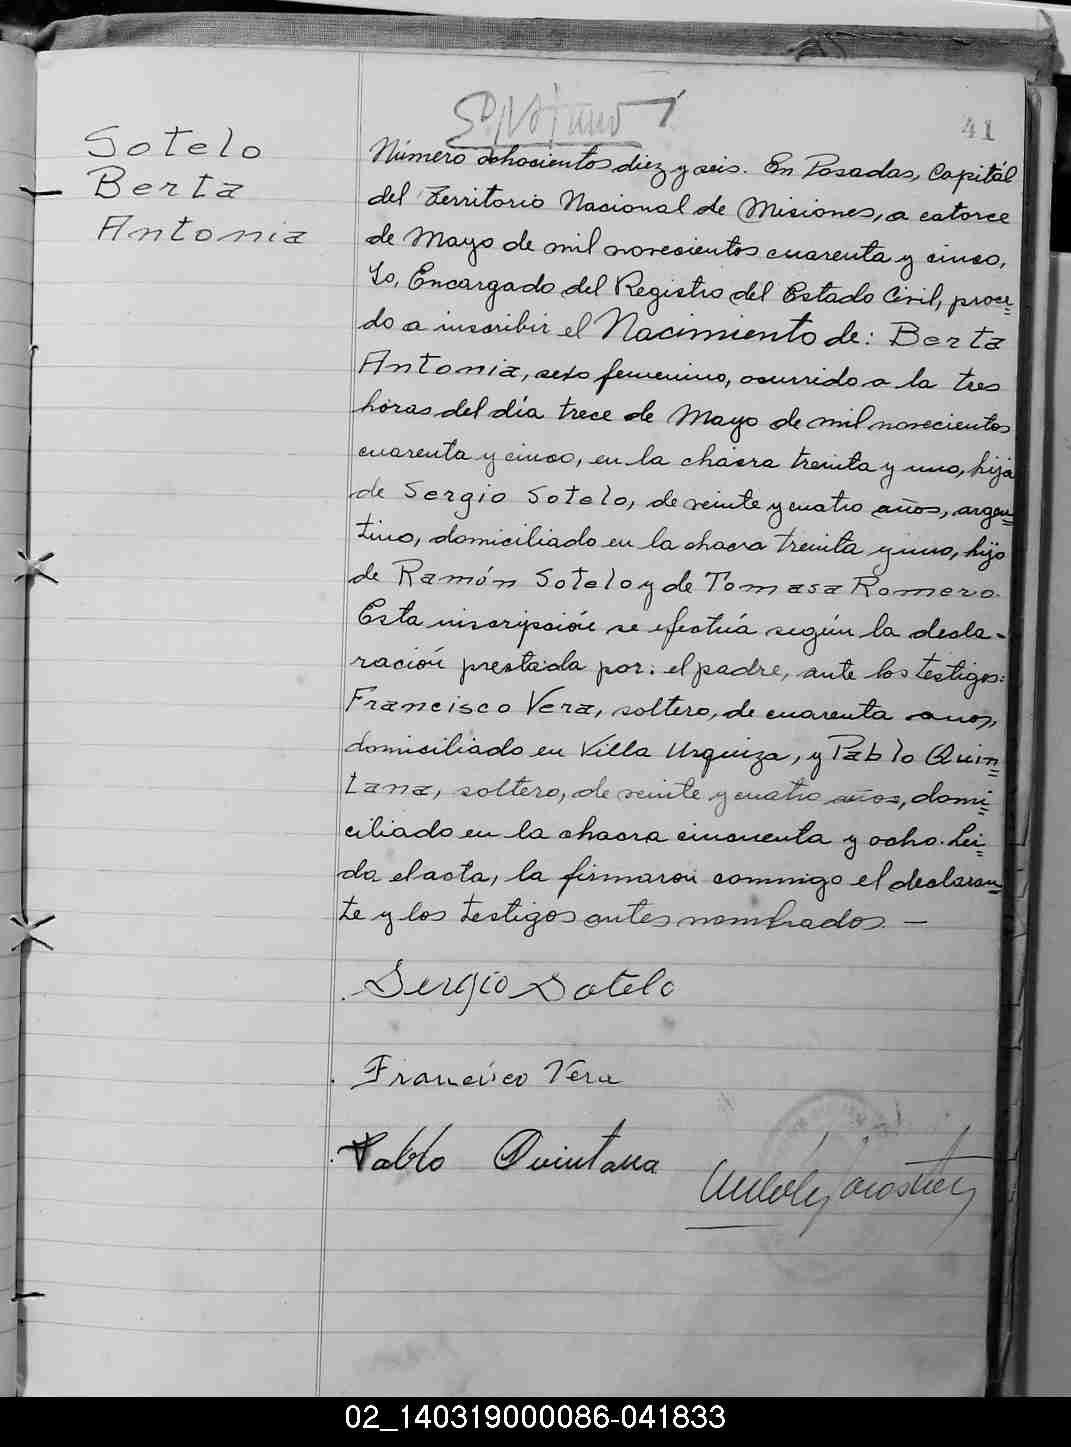 41
Sotelo
Berta
Antonia
Número ochocientos diez y seis. En Posadas, Capitál
del Territorio Nacional de Misiones, a catorce
de Mayo de mil novecientos cuarenta y cinco,
Yo, Encargado del Registro del Estado Civil, proce=
do a inscribir el Nacimiento de: Berta
Antonia, sexo femenino, ocurrido a la tres
horas del día trece de Mayo de mil novecientos
cuarenta y cinco, en la chacra treinta y uno, hija
de Sergio Sotelo, de veinte y cuatro años, argen=
tino, domiciliado en la chacra treinta y uno, hijo
de Ramón Sotelo y de Tomasa Romero.
Esta inscripción se efectúa según la decla-
ración prestada por: el padre, ante los testigos:
Francisco Vera, soltero, de cuarenta anos,
domiciliado en Villa Urquiza, y Pablo Quin=
tana, soltero, de veinte y cuatro años, domi=
ciliado en la chacra cincuenta y ocho. Lei=
da el acta, la firmaron conmigo el declaran=
te y los testigos antes nombrados. —
Sergio Sotelo
Francisco Vera
Pablo Quintana
02_140319000086-041833